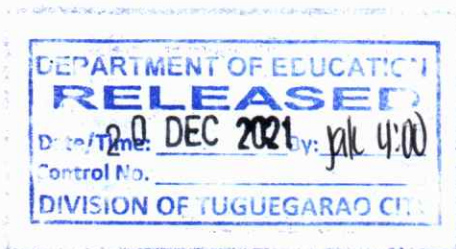 DEPARTMENT OF EDUCATION
RELEASED
Date/Time: 20 DEC 2021 By: jak 4:00
Control No.
DIVISION OF TUGUEGARAO CITY